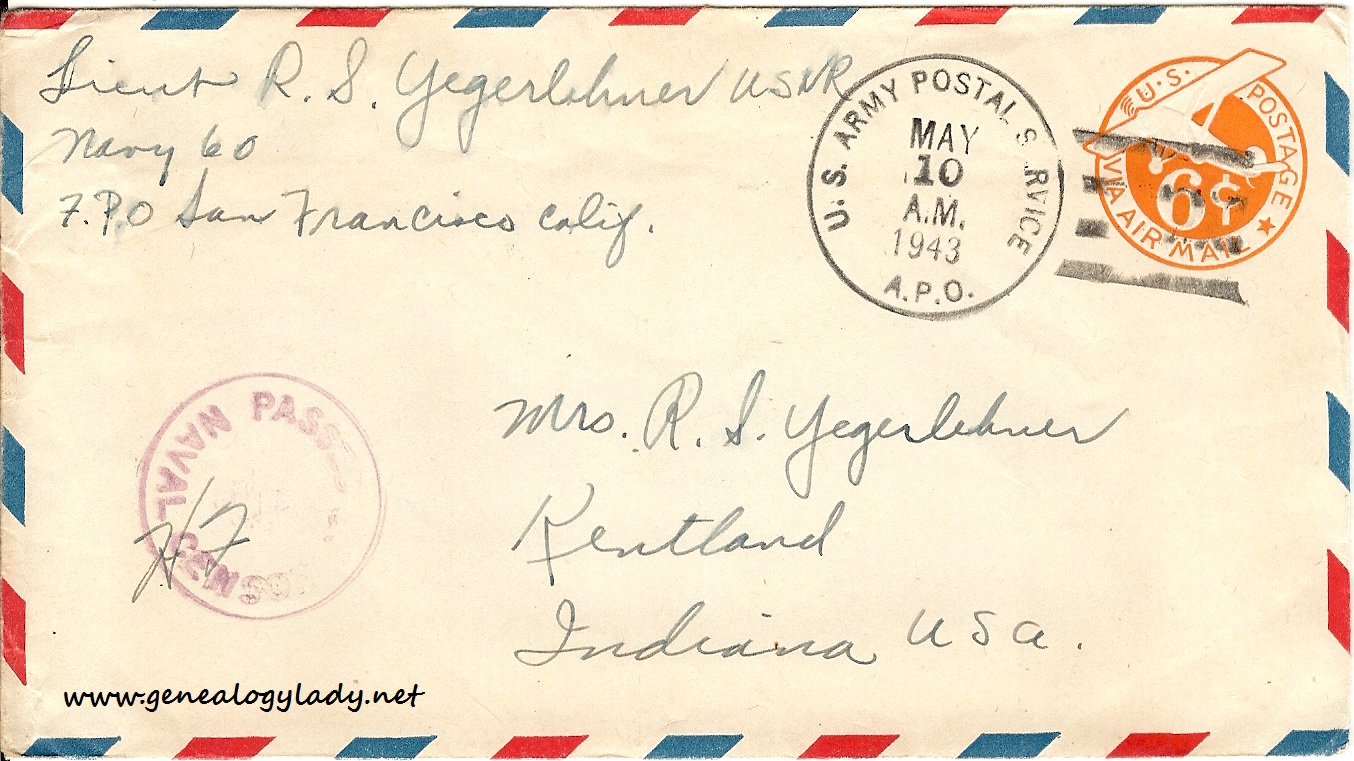 Lieut R. S. Yegerlehner USNR
Navy 60
F.P.O San Francisco Calif.
U.S. ARMY POSTAL SERVICE
MAY
10
A.M.
1943
A.P.O.
U.S. POSTAGE
6¢
VIA AIR MAIL
PASSED
NAVAL CENSOR
HF
Mrs. R. S. Yegerlehner
Kentland
Indiana USA.
www.genealogylady.net